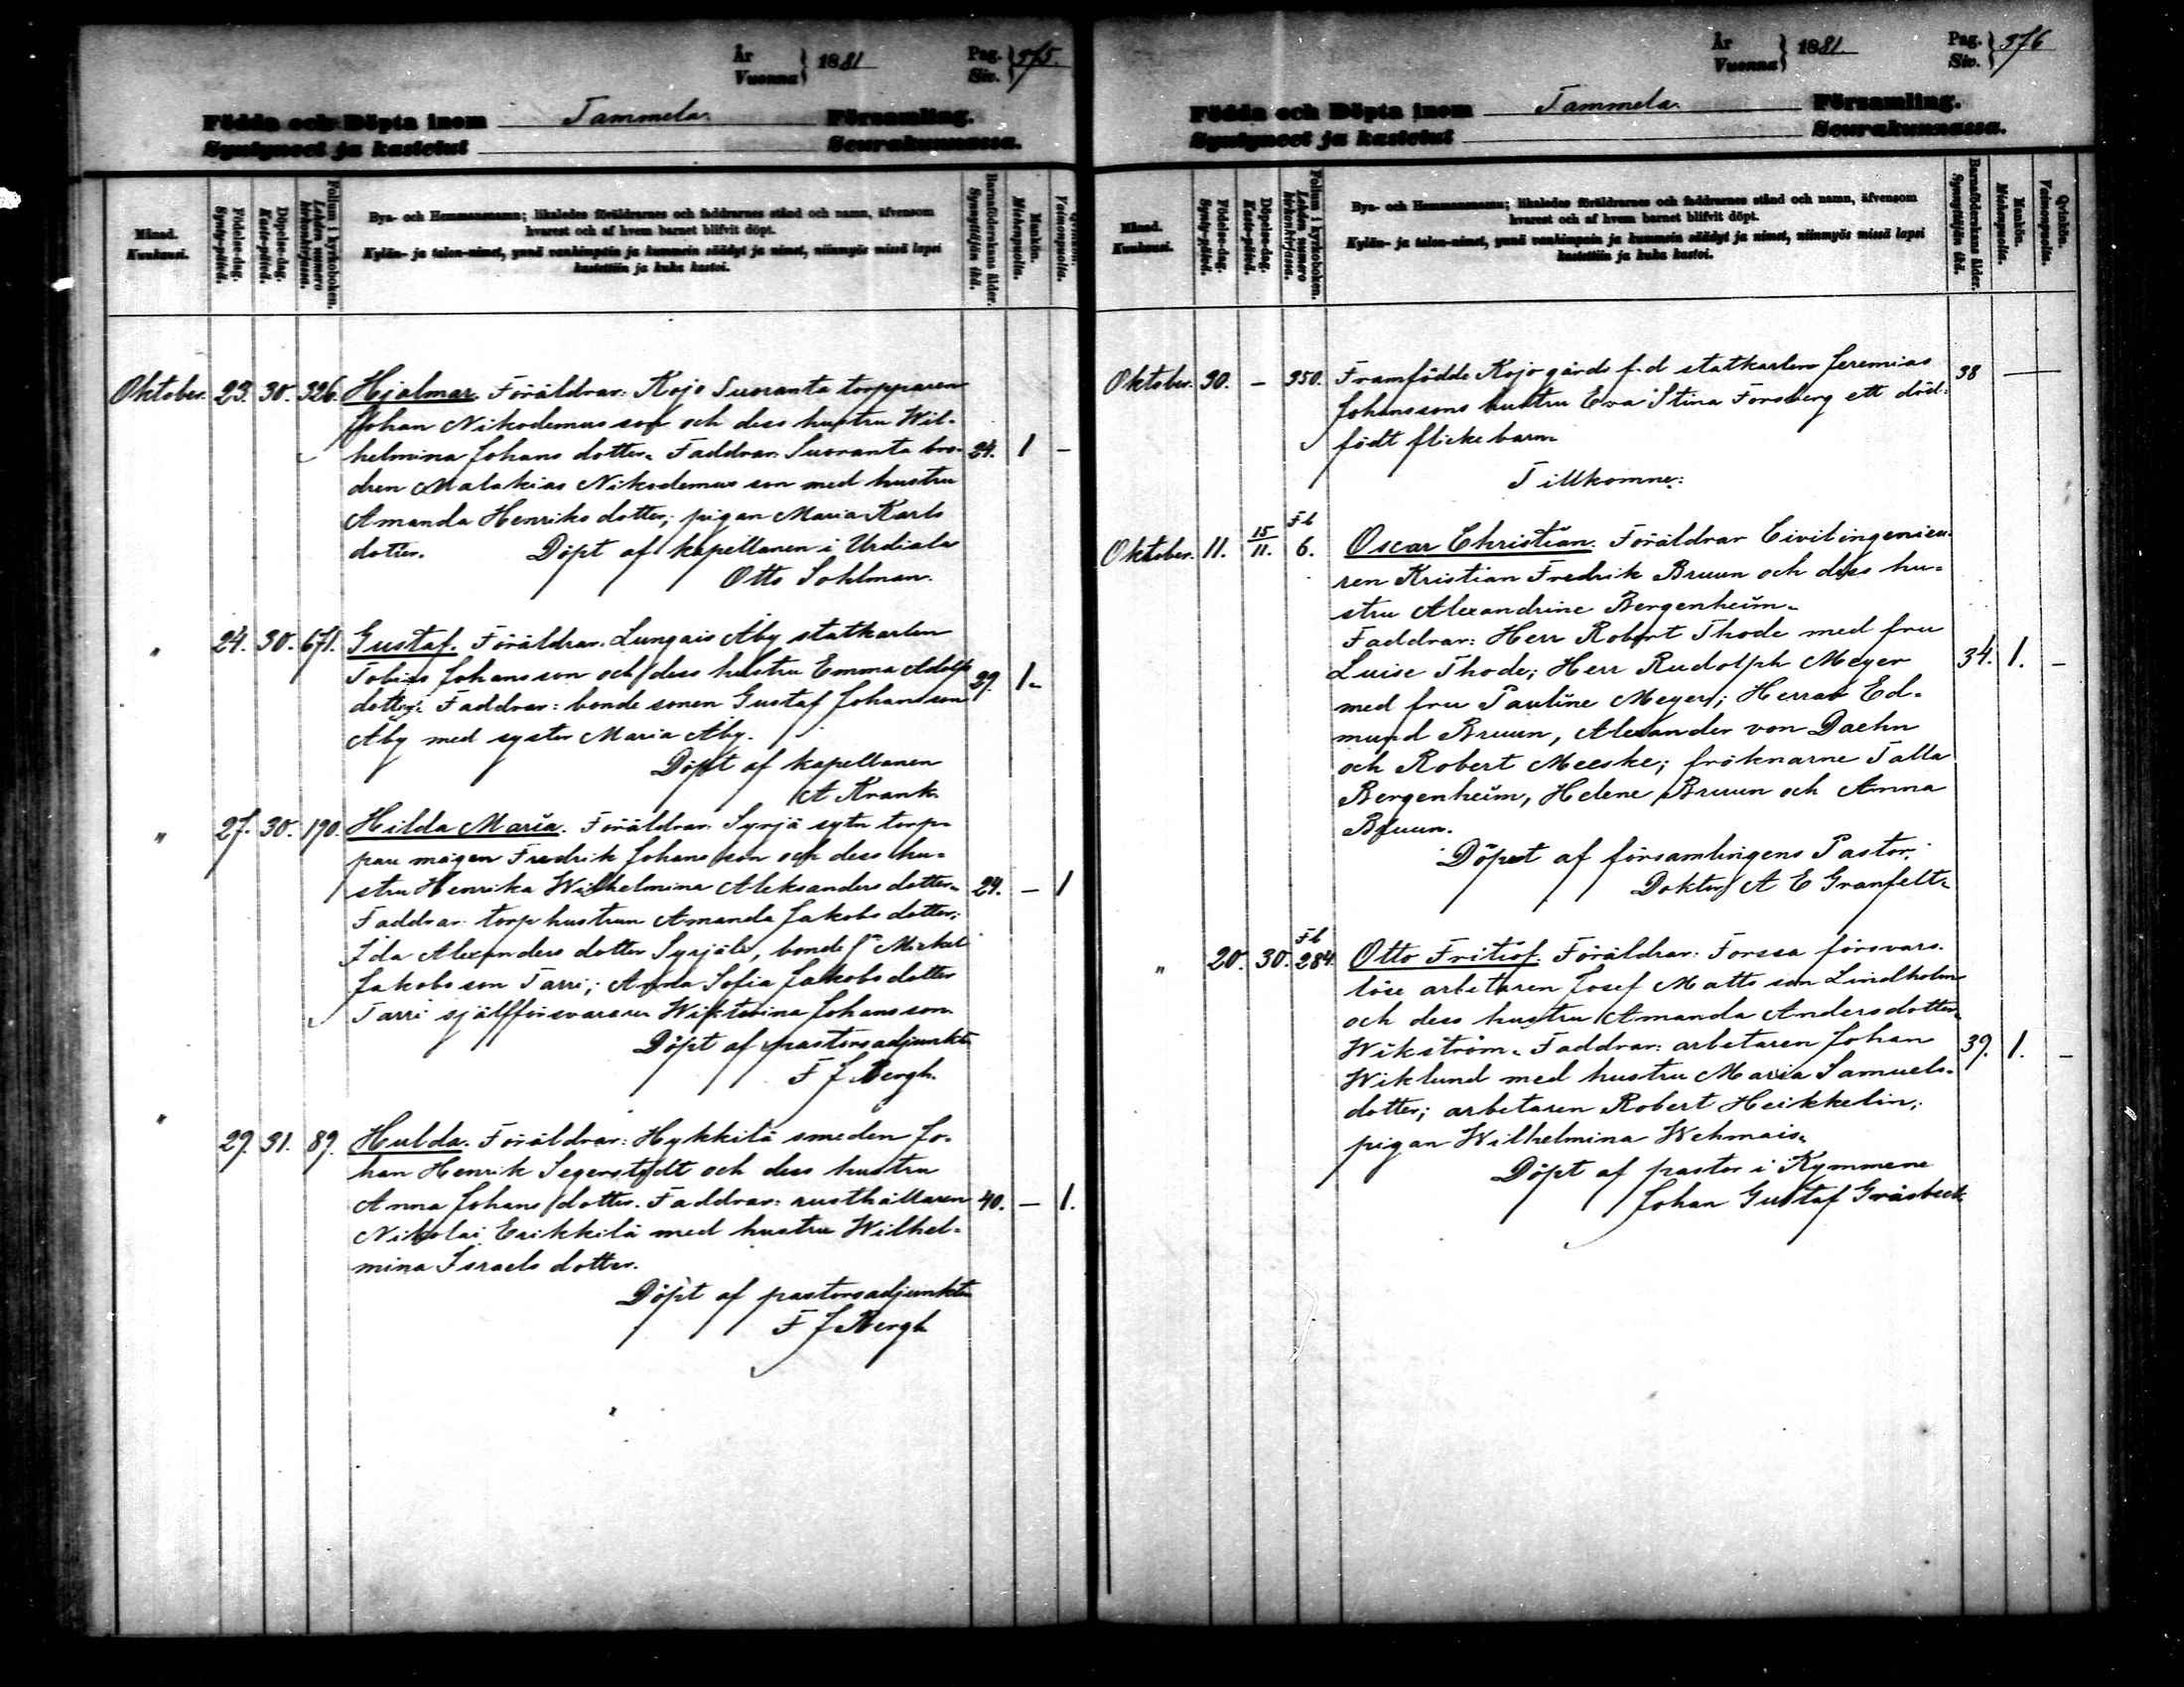 År
Vuonna } 1881 Pag.
Siv. } 575.
Födda och Döpta inom Tammela Församling.
Syntyneet ja kastetut Seurakunnassa.
Månad.
Kuukausi.
Födelse-dag.
Synty-päivä.
Döpelse-dag.
Kaste-päivä.
Folium i kyrkoboken.
Lehden numero
kirkonkirjassa.
Bya- och Hemmansnamn; likaledes föräldrarnes och faddrarnes stånd och namn, äfvensom
hvarest och af hvem barnet blifvit döpt.
Kylän- ja talon-nimet, ynnä vanhimpain ja kummein säädyt ja nimet, niinmyös missä lapsi
kastettiin ja kuka kastoi.
Barnaföderskans ålder.
Synnyttäjän ikä.
Mankön.
Miehenpuolia.
Qvinkön.
Vaimonpuolia.
Oktober. 23. 30. 326. Hjalmar. Föräldrar: Kojo Suoranta torpparen
Johan Nikodemus son och dess hustru Wil-
helmina Johans dotter. Faddrar: Suoranta bro- 24. 1 -
dren Malakias Nikodemus son med hustru
Amanda Henriks dotter; pigan Maria Karls
dotter. Döpt af kapellanen i Urdiala
Otto Sohlman.
" 24. 30. 671. Gustaf. Föräldrar. Lungais Åby statkarlen
Tobias Johansson och dess hustru Emma Adolfs
dotter. Faddrar: bonde sonen Gustaf Johansson 29. 1-
Åby med syster Maria Åby.
Döpt af kapellanen
A Krank.
" 27. 30. 190. Hilda Maria. Föräldrar. Syrjä sytn torp-
pare mågen Fredrik Johans son och dess hu-
stru Henrika Wilhelmina Aleksanders dotter. 24. - 1
Faddrar: torp hustrun Amanda Jakobs dotter;
Ida Alexanders dotter Syrjälä, bonde sn Mickel
Jakobs son Tarri; Anna Sofia Jakobs dotter
Tarri själfförsvararen Wiktorina Johansson.
Döpt af pastorsadjunkten
F J Bergh.
" 29. 31. 89. Hulda. Föräldrar: Hykkilä smeden Jo-
han Henrik Segerstedt och dess hustru
Anna Johans dotter. Faddrar: rusthållaren 40. - 1.
Nikolai Erikkilä med hustru Wilhel-
mina Israels dotter.
Döpt af pastorsadjunkten
F J Bergh
År
Vuonna } 1881. Pag.
Siv. } 576
Födda och Döpta inom Tammela Församling.
Syntyneet ja kastetut Seurakunnassa.
Månad.
Kuukausi.
Födelse-dag.
Synty-päivä.
Döpelse-dag.
Kaste-päivä.
Folium i kyrkoboken.
Lehden numero
kirkonkirjassa.
Bya- och Hemmansnamn; likaledes föräldrarnes och faddrarnes stånd och namn, äfvensom
hvarest och af hvem barnet blifvit döpt.
Kylän- ja talon-nimet, ynnä vanhimpain ja kummein säädyt ja nimet, niinmyös missä lapsi
kastettiin ja kuka kastoi.
Barnaföderskans ålder.
Synnyttäjän ikä.
Mankön.
Miehenpuolia.
Qvinkön.
Vaimonpuolia.
Oktober. 30. - 350. Framfödde Kojo gårds f.d statkarlen Jeremias 38 -
Johanssons hustru Eva Stina Forsberg ett död-
födt flickebarn
Tillkomne:
Oktober. 11. 15/11. Fb 6. Oscar Christian. Föräldrar Civilingenieu-
ren Kristian Fredrik Bruun och dess hu-
stru Alexandrine Bergenheim.
Faddrar: Herr Robert Thode med fru
Luise Thode; Herr Rudolph Meyer 34. 1. -
med fru Pauline Meyer; Herrar Ed-
mund Bruun, Alexander von Daehn
och Robert Meeske; fröknarne Talla
Bergenheim, Helene Bruun och Anna
Bruun.
Döpt af församlingens Pastor,
Doktor A E Granfelt.
" 20. 30. Fb 284. Otto Fritiof. Föräldrar: Forssa försvars-
löse arbetaren Josef Matts son Lindholm
och dess hustru Amanda Andersdotter
Wikström. Faddrar: arbetaren Johan 39. 1. -
Wiklund med hustru Maria Samuels-
dotter; arbetaren Robert Heikkelin;
pigan Wilhelmina Wehmais.
Döpt af pastor i Kymmene
Johan Gustaf Gråsbeck